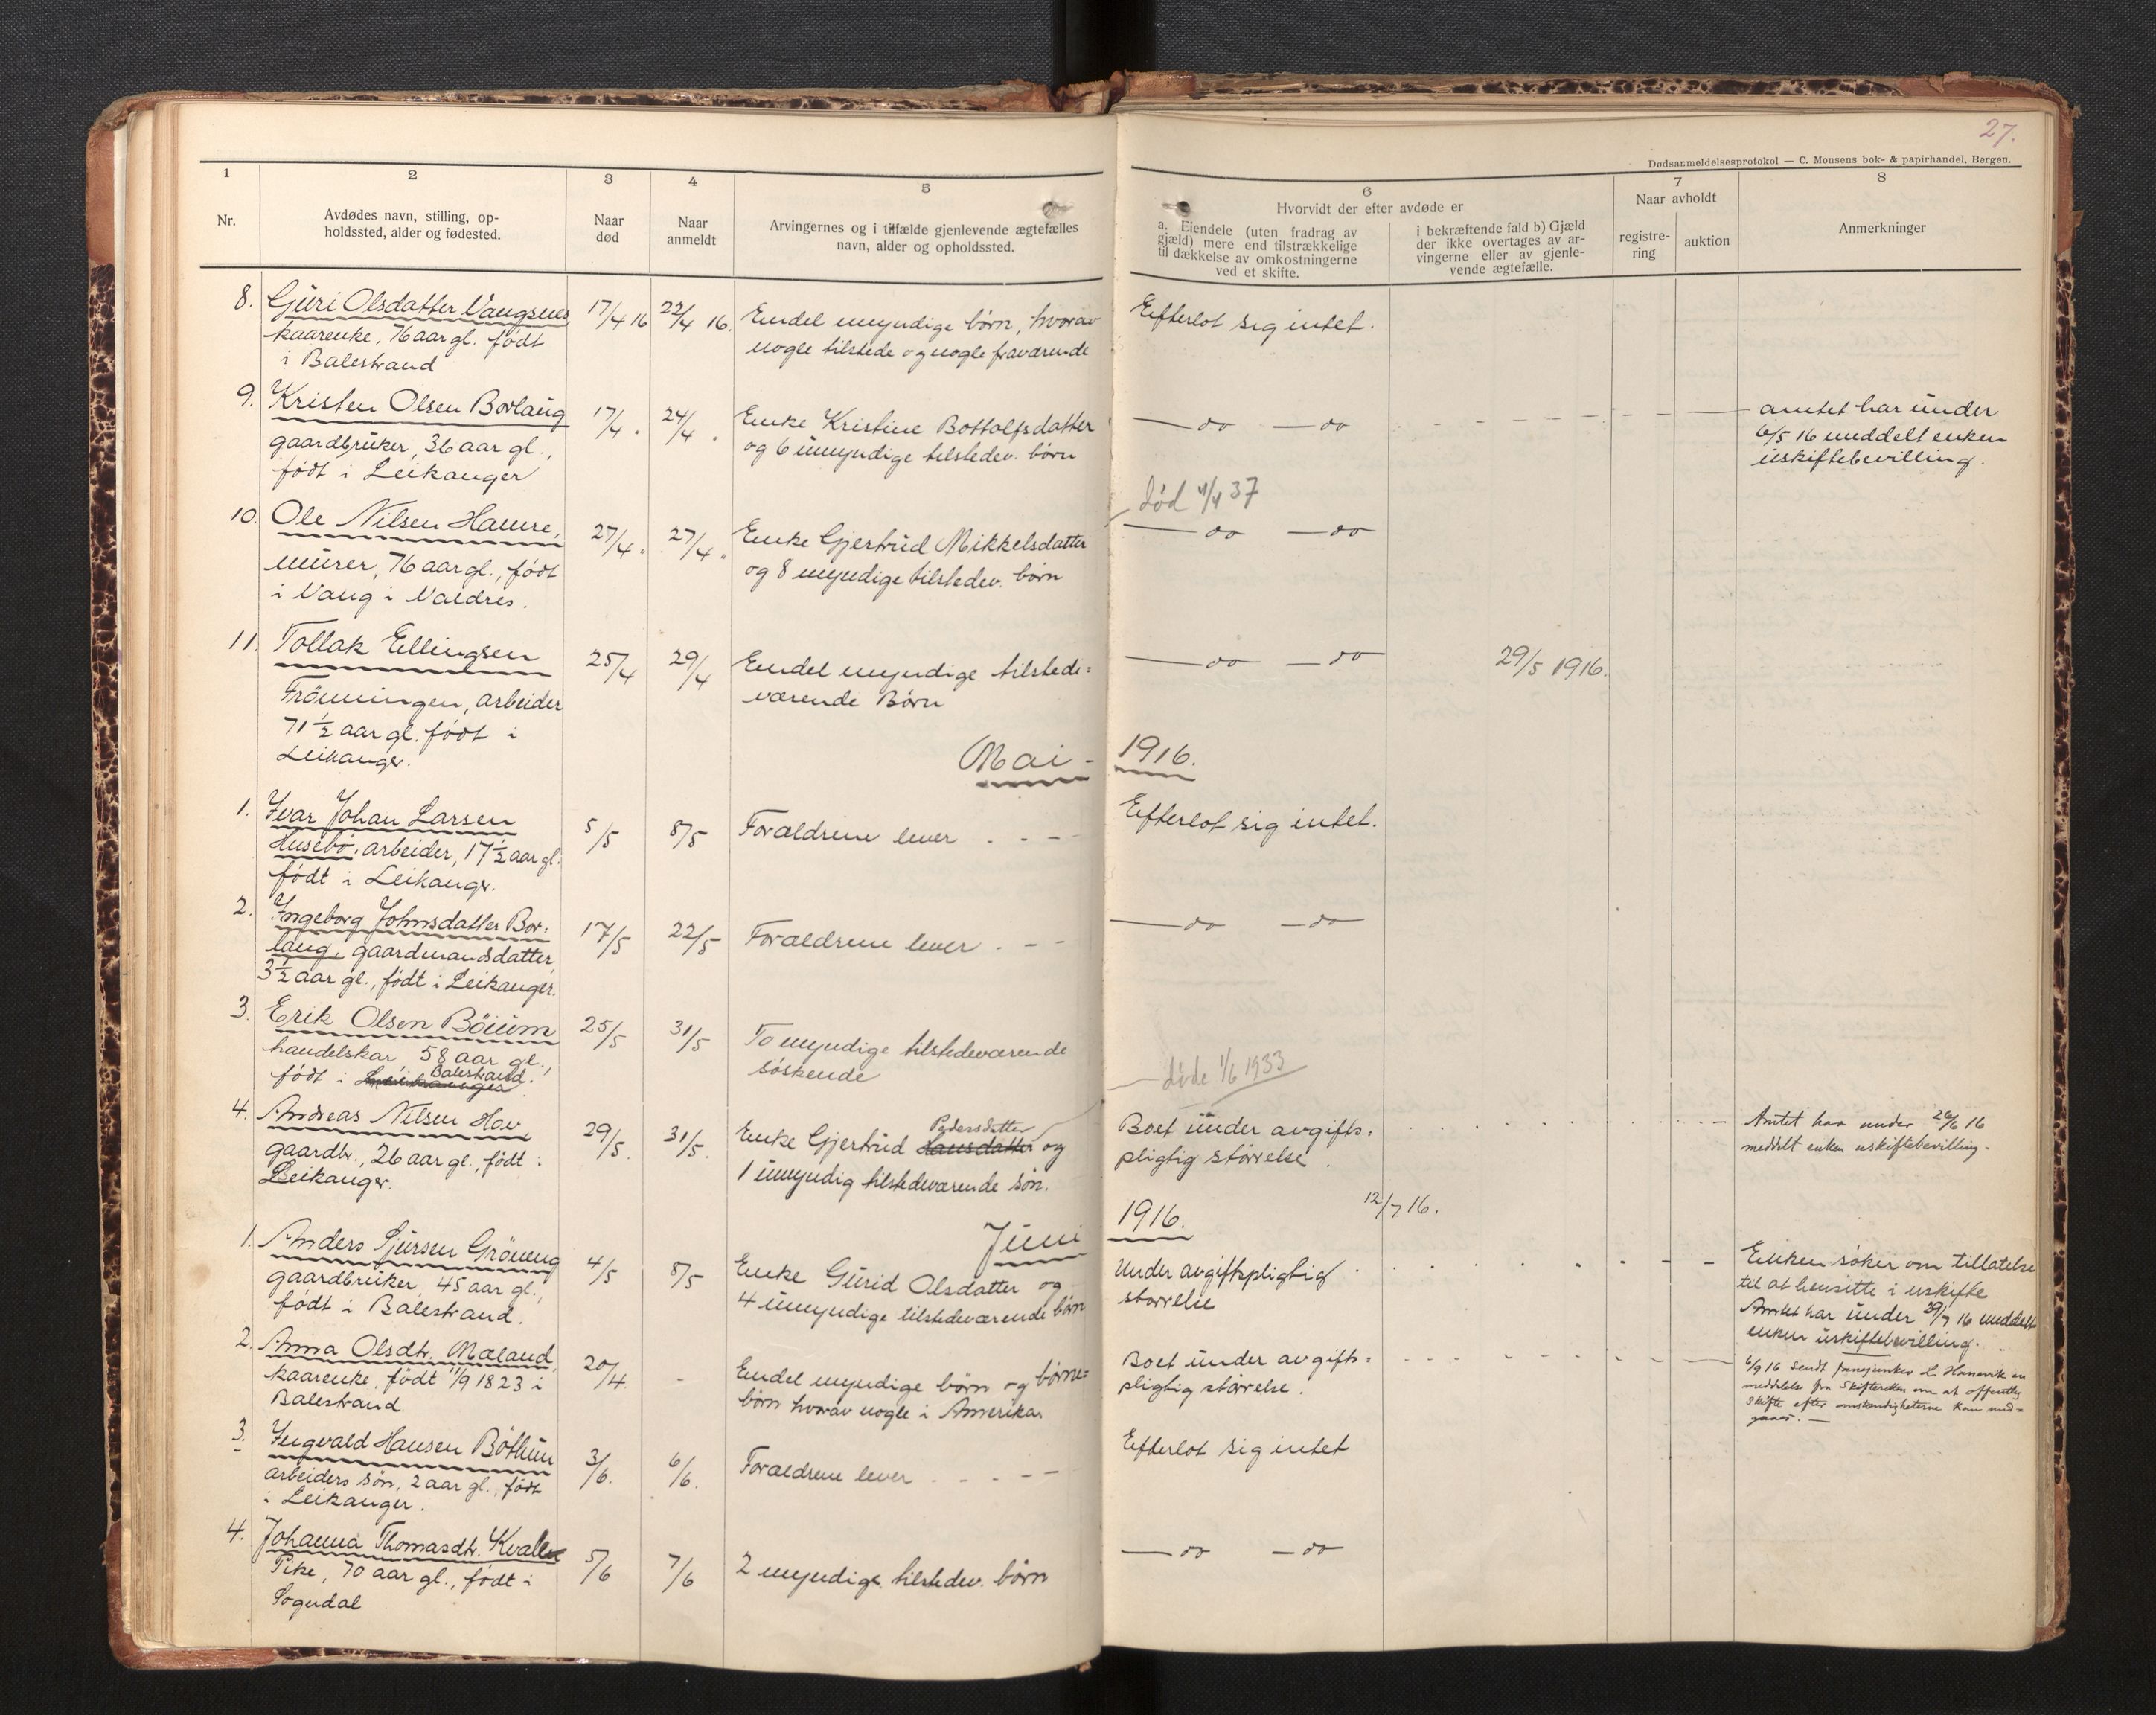 27.
Dødsanmeldelsesprotokol — C. Monsens bok- & papirhandel, Bergen.
1
2
3
4
5
6
7
8
Nr.
Avdødes navn, stilling, op-
holdssted, alder og fødested.
Naar
død
Naar
anmeldt
Arvingernes og i tilfælde gjenlevende ægtefælles
navn, alder og opholdssted.
Hvorvidt der efter avdøde er
a. Eiendele (uten fradrag av
gjæld) mere end tilstrækkelige
til dækkelse av omkostningerne
ved et skifte.
i bekræftende fald b) Gjæld
der ikke overtages av ar-
vingerne eller av gjenle-
vende ægtefælle.
Naar avholdt
registre-
ring
auktion
Anmerkninger
8. Guri Olsdatter Vangsnes
kaarenke, 76 aar gl. født
i Balestrand
17/4 16
22/4 16.
Endel myndige børn, hvorav
nogle tilstede og nogle fraværende
Efterlot sig intet.
9. Kristen Olsen Borlaug
gaardbruker, 36 aar gl.,
født i Leikanger
17/4 "
24/4 "
Enke Kristine Bottolfsdatter
og 6 umyndige tilstedev. børn
— do — do
amtet har under
6/5 16 meddelt enken
uskiftebevilling.
10. Ole Nilsen Hamre,
murer, 76 aar gl., født
i Vang i Valdres.
27/4 "
27/4 "
Enke Gjertrud Mikkelsdatter
og 8 myndige tilstedev. børn
død 4/4 37
— do — do
11. Tollak Ellingsen
Frönningen, arbeider
71 ½ aar gl. født i
Leikanger.
25/4
29/4
Endel myndige tilstede=
værende Børn
— do — do
29/5 1916.
Mai - 1916.
1. Ivar Johan Larsen
Husebö, arbeider, 17½ aar gl.
født i Leikanger.
5/5
8/5
Forældrene lever . - -
Efterlot sig intet.
2. Ingeborg Johnsdatter Bor=
laug, gaardmandsdatter
3½ aar gl., født i Leikanger.
17/5
22/5
Forældrene lever . - -
— do — do
3. Erik Olsen Böium
handelskar, 58 aar gl.,
Balestrand.
født i Leikanger
25/5
31/5
To myndige tilstedeværende
søskende
døde 1/6 1933
4. Andreas Nilsen Hov
gaardbr., 26 aar gl., født i
Leikanger.
29/5.
31/5.
Pedersdatter
Enke Gjertrud Hansdatter og
1 umyndig tilstedeværende søn.
Boet under avgifts=
pligtig størrelse.
Amtet har under 26/6 16
meddelt enken uskiftebevilling.
Juni 1916.
12/7 16.
1. Anders Sjursen Gröneng
gaardbruker, 45 aar gl.,
født i Balestrand.
4/5
8/5
Enke Gurid Olsdatter og
4 umyndige tilstedeværende børn
Under avgiftspligtig
størrelse
Enken søker om tillatelse
til at hensitte i uskifte
Amtet har under 29/7 16 meddelt
enken uskiftebevilling.
2. Anna Olsdtr. Mæland,
kaarenke, født 11/9 1823 i
Balestrand
20/4
-
Endel myndige børn og børne=
børn hvorav nogle i Amerika.
Boet under avgifts=
pligtig størrelse.
6/9 16 sendt L. Hamrvik en
meddelelse fra Skifteretten om at offentlig
Skifte efter omstændigheterne kan und=
gaaes. —
3. Ingvald Hansen Böthun
arbeiders søn, 2 aar gl., født
i Leikanger.
3/6.
6/6.
Forældrene lever . - - - -
Efterlot sig intet
4. Johanna Thomasdtr. Kvalen
Pike, 70 aar gl., født i
Sogndal
5/6
7/6
2 myndige tilstedev. børn
— do — do